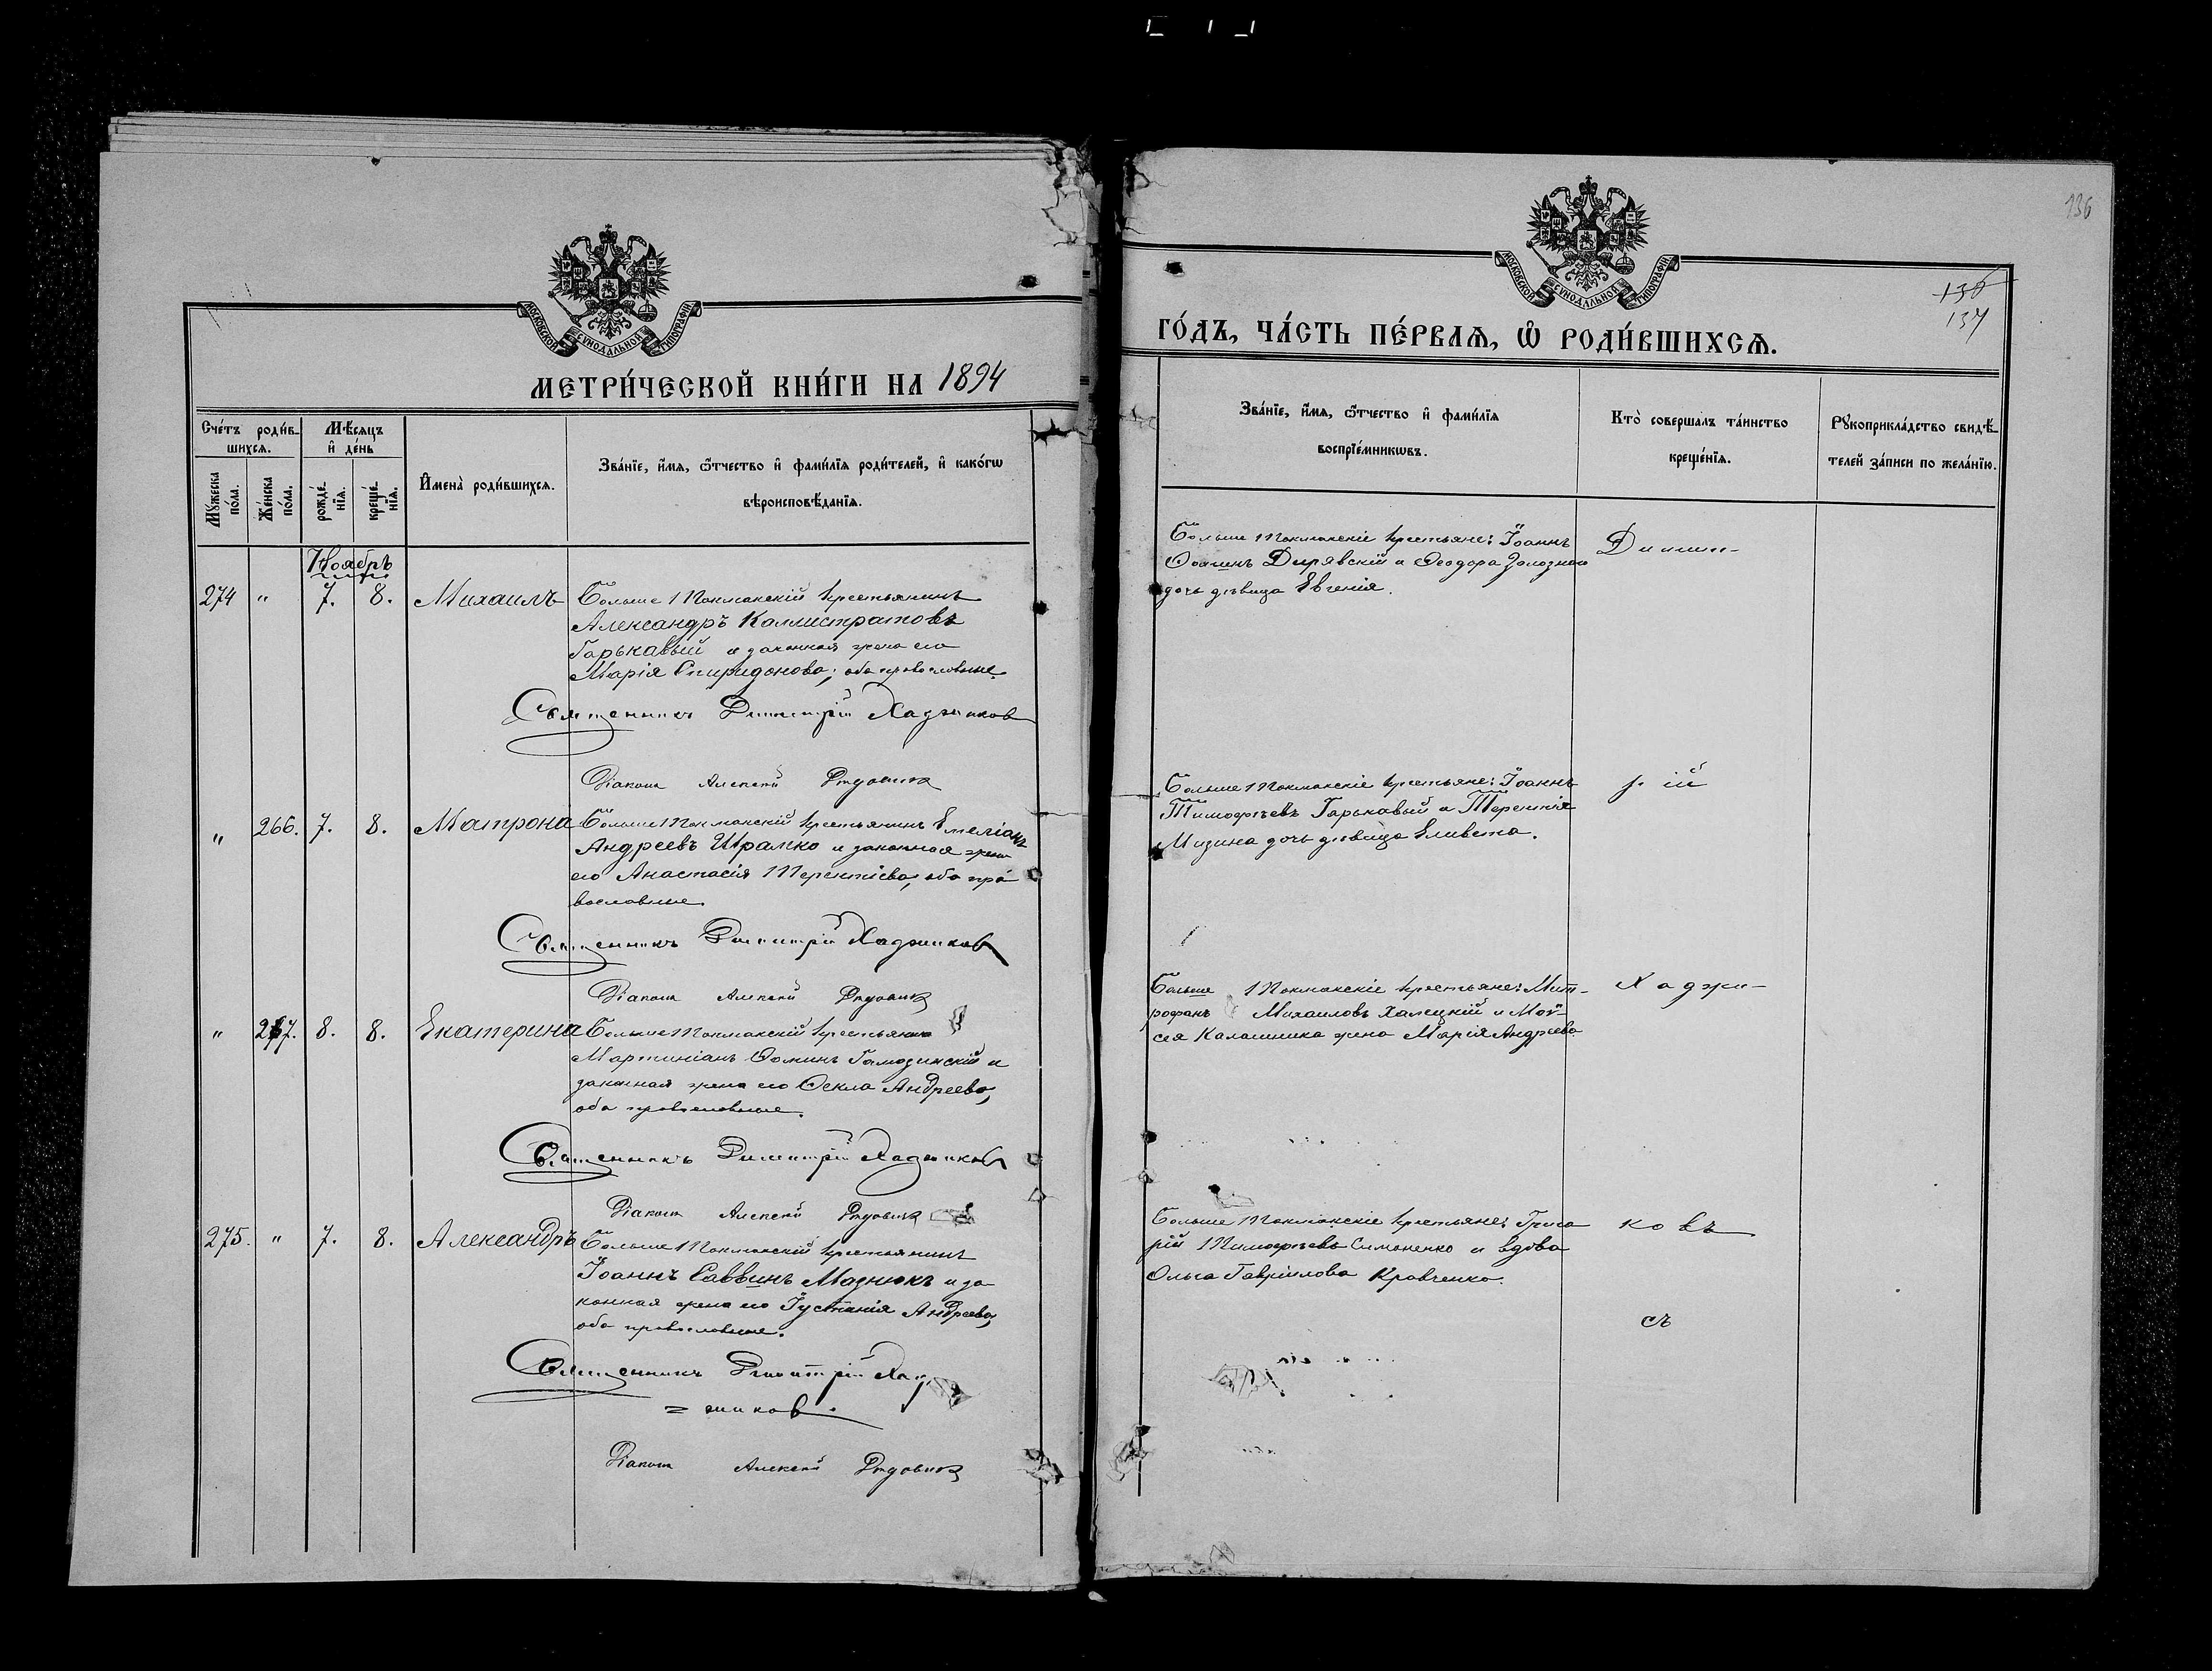 МОСКОВСКОЙ СѴНОДАЛЬНОЙ ТИПОГРАФІИ
МЕТРИ́ЧЕСКОЙ КНИ́ГИ НА 1894
Сче́тъ роди́в-
шихсѧ.
Мѣ́сѧцъ
и҆ де́нь
Мꙋ́жеска
по́ла.
Же́нска
по́ла.
рожде́-
нїѧ.
креще́-
нїѧ.
И҆мена̀ роди́вшихсѧ.
Зва́нїе, и҆́мѧ, ѻ҆́тчество и҆ фами́лїѧ роди́телей, и҆ како́гѡ
вѣроисповѣ́данїѧ.
Ноябрь
274 " 7. 8. Михаилъ Больше Токмакскій крестьянинъ
Александръ Каллистратовъ
Горькавый и законная жена его
Марія Спиридонова; оба православные
Священникъ Димитрій Хаджинов
Діаконъ Алексій
" 266. 7. 8. Матрона Больше Токмакскій крестьянинъ Емеліанъ
Андреевъ Шрамко и законная жена
его Анастасія Терентіева, оба пра
вославные.
Священникъ Димитрій Хаджинов
Діаконъ Алексій
" 267. 8. 8. Екатерина Больше Токмакскій крестьянинъ
Мартиніанъ Ѳоминъ и
законная жена его Ѳекла Андреева,
оба православные.
Священникъ Димитрій Хаджинов
Діаконъ Алексій
275. " 7. 8. Александръ Больше Токмакскій крестьянинъ
Іоаннъ Саввинъ Мазнюкъ и за
конная жена его Іустинія Андреева,
оба православные.
Священникъ Димитрій Хад
Діаконъ Алексій
136
МОСКОВСКОЙ СѴНОДАЛЬНОЙ ТИПОГРАФІИ
136
137
ГО́ДЪ, ЧА́СТЬ ПЕ́РВАѦ, Ѡ҆ РОДИ́ВШИХСѦ.
Зва́нїе, и҆́мѧ, ѻ҆́тчество и҆ фами́лїѧ
воспрїе́мникѡвъ.
Кто̀ соверша́лъ та́инство
креще́нїѧ.
Рꙋкоприкла́дство свидѣ́-
телей за́писи по жела́нїю.
Больше Токмакскіе крестьяне: Іоаннъ
Ѳоминъ Дирявскій и Ѳеодора
дочь дѣвица Евгенія.
Димит-
Больше Токмакскіе крестьяне: Іоаннъ
Тимофѣевъ Горькавый и Терентія
Мизина дочь дѣвица Еливета.
р. ій
Больше Токмакскіе крестьяне: Мит-
рофанъ Михаиловъ Халецкій и Мой-
сея Калашника жена Марія Андреева.
Хаджи-
Больше Токмакскіе крестьяне: Григо
рій Тимофѣевъ Симоненко и вдова
Ольга Гавріилова Кравченко.
ковъ
съ